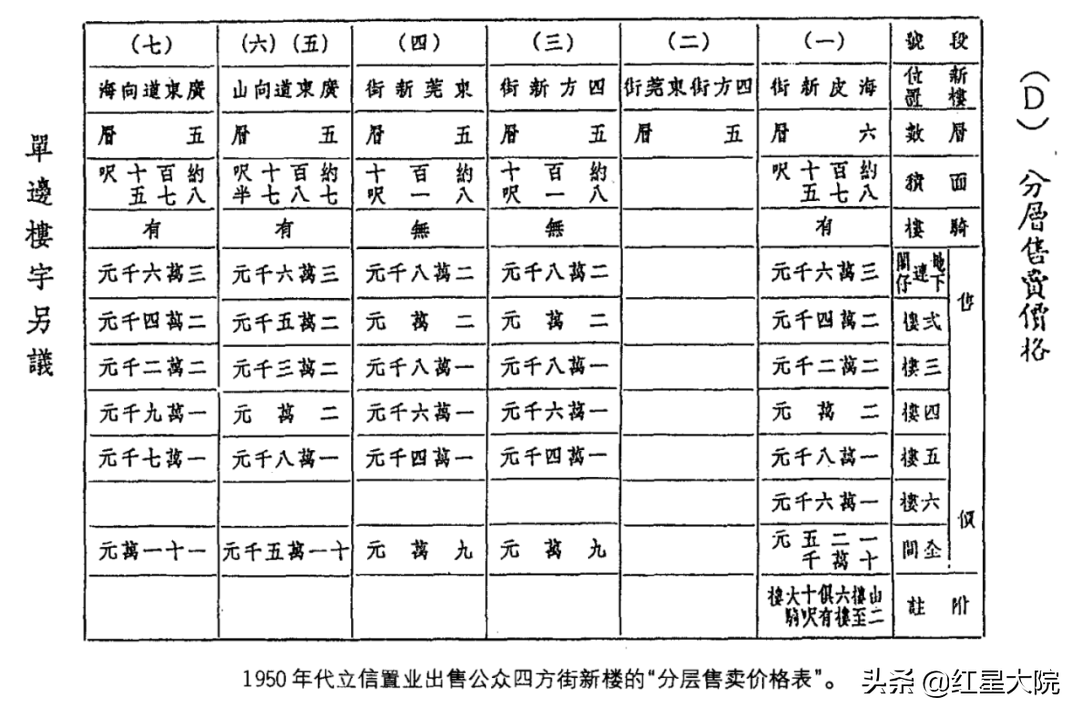 (D) 分層售賣價格
段號 (一) (二) (三) (四) (五)(六) (七)
新樓位置 海皮新街 四方街東莞街 四方新街 東莞新街 廣東道向山 廣東道向海
層數 六層 五層 五層 五層 五層 五層
面積 約八百七十五呎 約八百一十呎 約八百一十呎 約七百八十七呎半 約八百七十五呎
騎樓 有 無 無 有 有
售價
地下連閣仔 三萬六千元 二萬八千元 二萬八千元 三萬六千元 三萬六千元
弍樓 二萬四千元 二萬元 二萬元 二萬五千元 二萬四千元
三樓 二萬二千元 一萬八千元 一萬八千元 二萬三千元 二萬二千元
四樓 二萬元 一萬六千元 一萬六千元 二萬元 一萬九千元
五樓 一萬八千元 一萬四千元 一萬四千元 一萬八千元 一萬七千元
六樓 一萬六千元
全間 一十二萬五千元 九萬元 九萬元 十一萬五千元 一十一萬元
附註 山二樓至六樓俱有十呎大騎樓
單邊樓宇另議
1950年代立信置业出售公众四方街新楼的“分层售卖价格表”。
头条 @红星大院